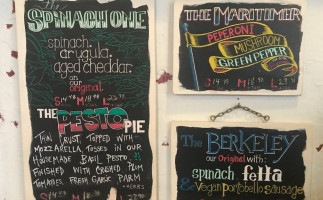 the
SPINACH ONE
spinach,
arugula,
aged cheddar.
on our
original.
THE
PESTO
PIE
THIN CRUST, TOPPED WITH
MOZZARELLA, TOSSED IN OUR
HOMEMADE BASIL PESTO &
FINISHED WITH CRUSHED PLUM
TOMATOES, FRESH GARLIC PARM
THE MARITIMER
PEPERONI
MUSHROOM
GREEN PEPPER
The BERKELEY
our Original with:
spinach fetta
& Vegan portobello sausage